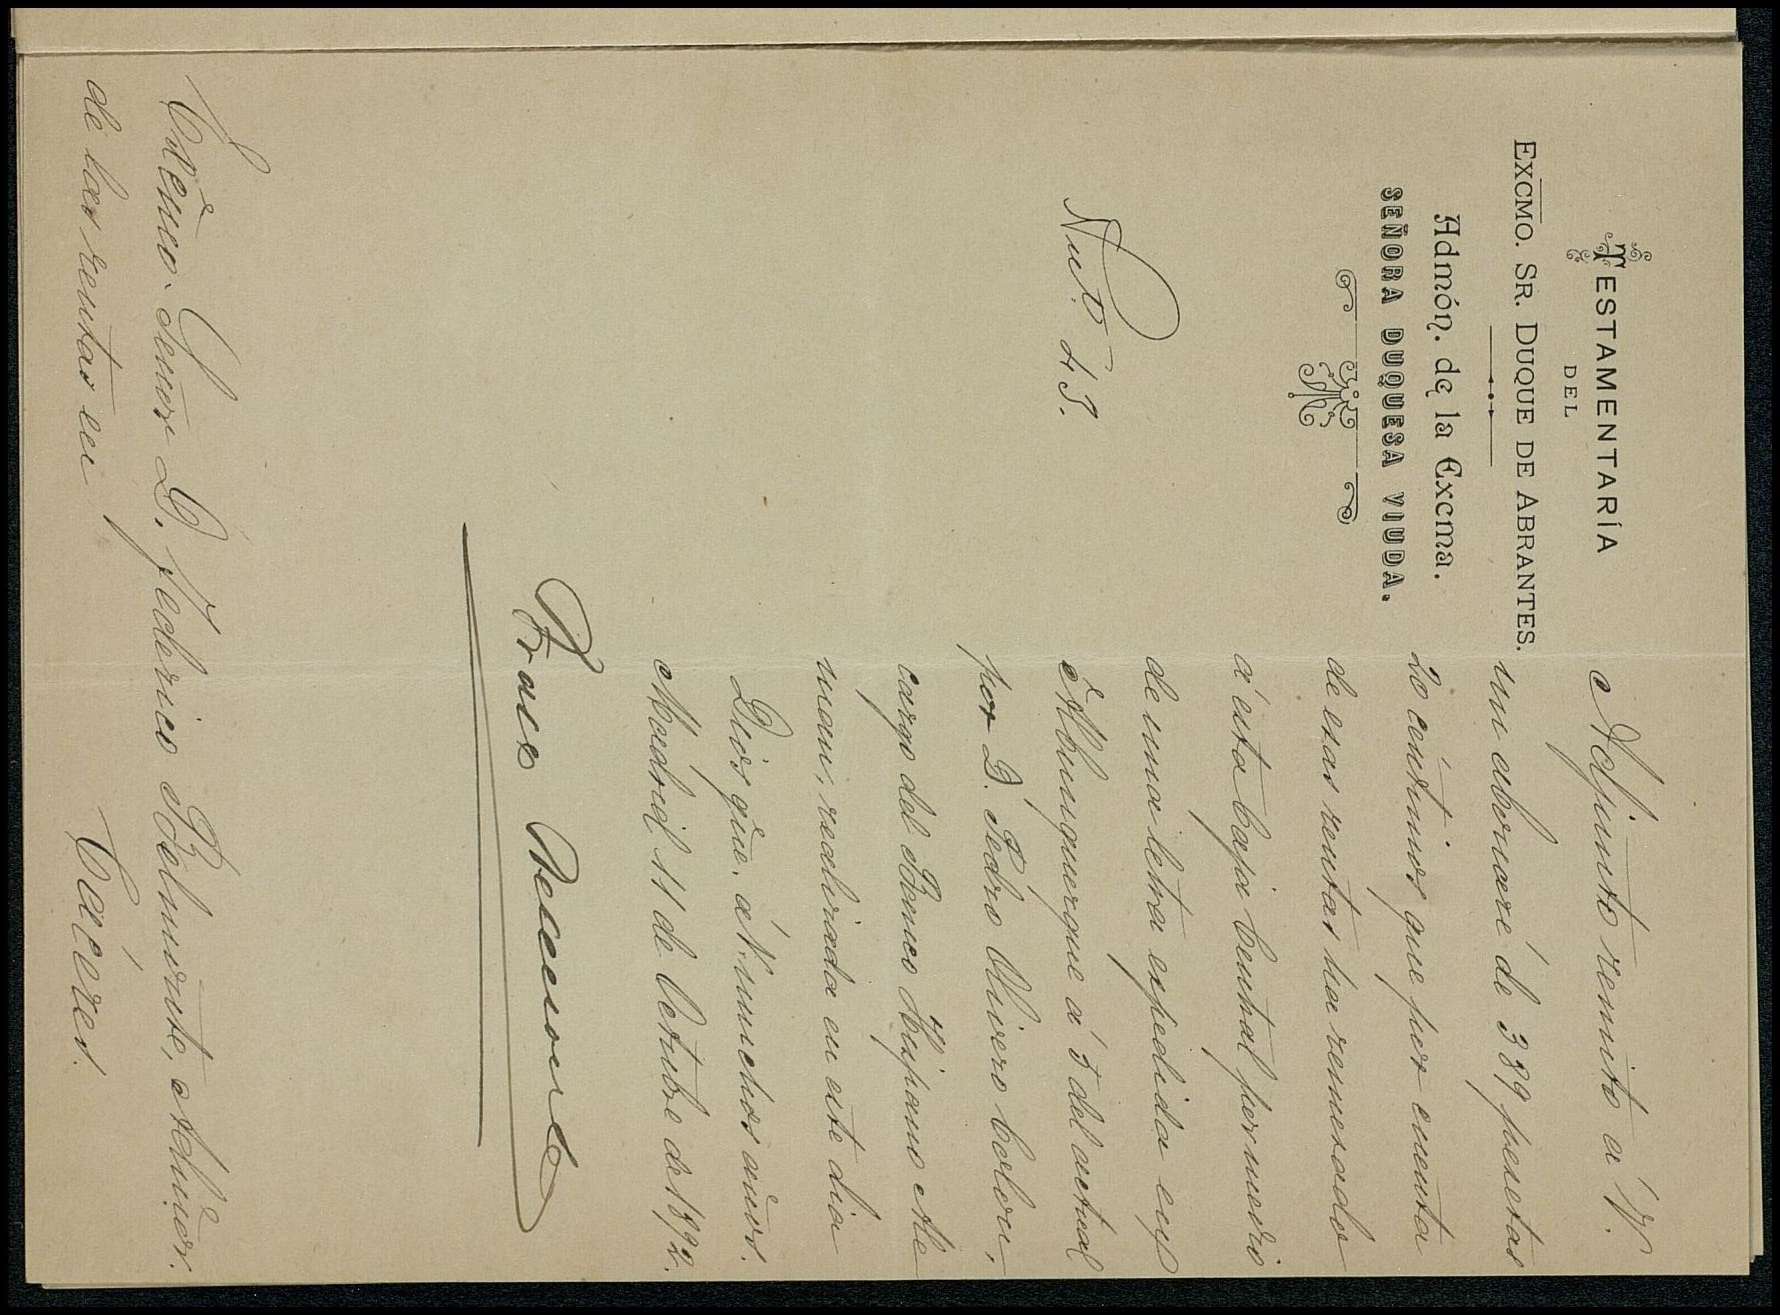 TESTAMENTARÍA
DEL
EXCMO. SR. DUQUE DE ABRANTES.
Admón. de la Excma.
SEÑORA DUQUESA VIUDA.
Adjunto remito a V.
un abonaré de 389 pesetas
20 céntimos que por cuenta
de esas rentas ha remesado
á esta Caja Central por medio
de una letra espedida en
Alburquerque á 3 del actual
por D. Pedro Olivero Colon,
cargo del Banco Hispano Ale
man, realizada en este dia
Dios gue. á V. muchos años.
Madrid 11 de Octubre de 1892.
Señor D. Federico Belmonte, Admor.
de las rentas en Cáceres.